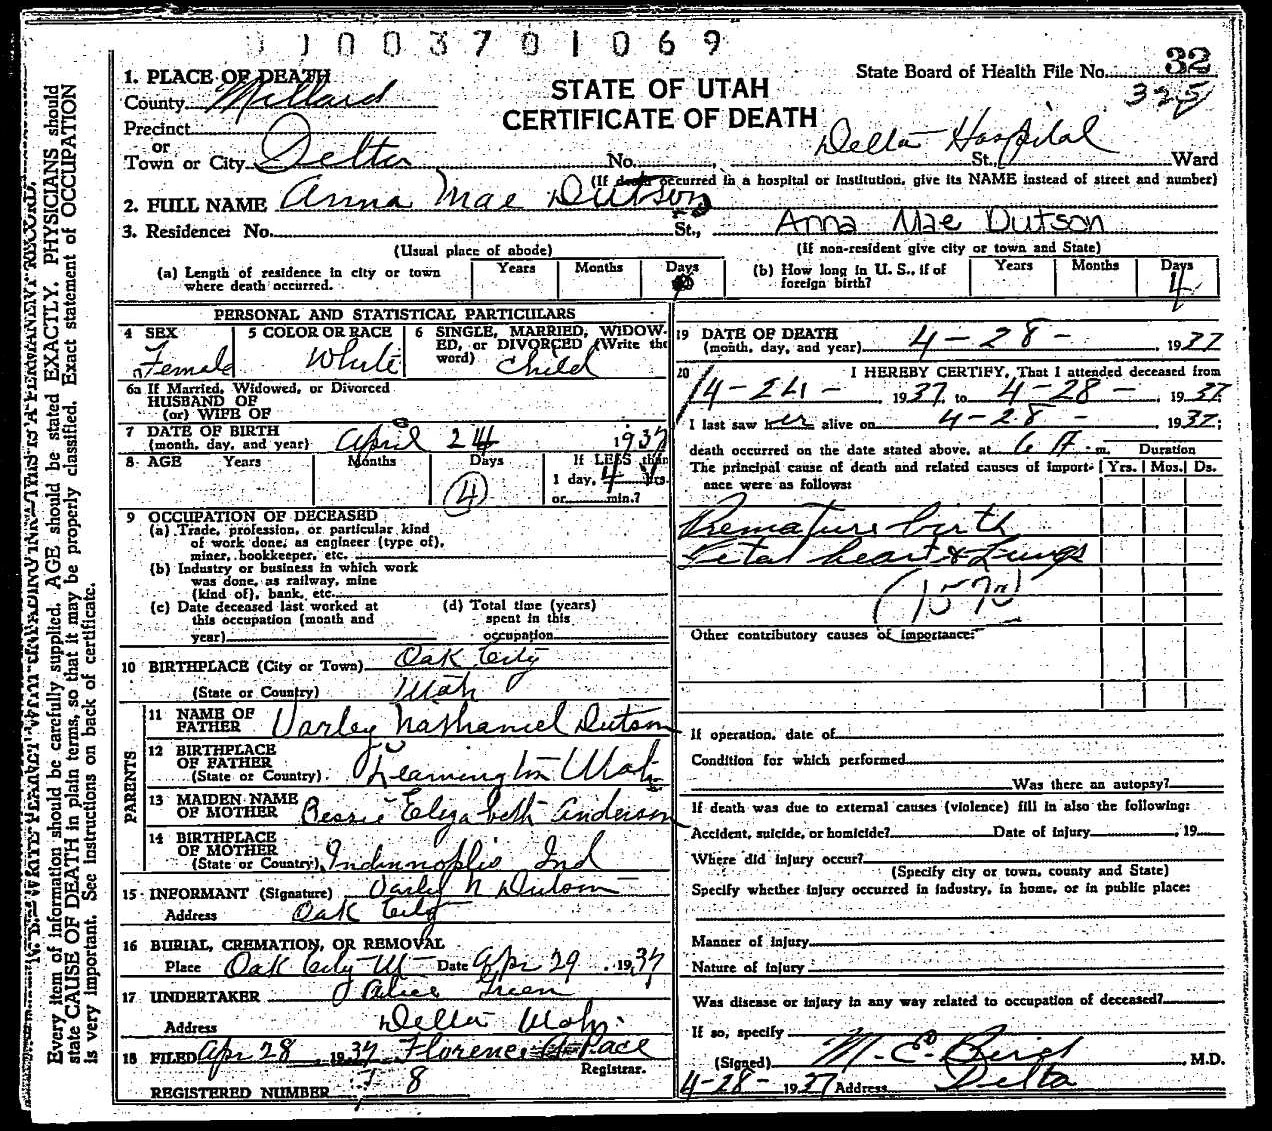 0 1 0 0 3 7 0 1 0 6 9
State Board of Health File No. 32
325
STATE OF UTAH
CERTIFICATE OF DEATH
1. PLACE OF DEATH
County Millard
Precinct
or
Town or City Delta No. , Delta Hospital St., Ward
(If death occurred in a hospital or institution, give its NAME instead of street and number)
2. FULL NAME Anna Mae Dutson
3. Residence: No. St., Anna Mae Dutson
(Usual place of abode) (If non-resident give city or town and State)
(a) Length of residence in city or town where death occurred. Years Months Days
(b) How long in U. S., if of foreign birth? Years Months Days 4
PERSONAL AND STATISTICAL PARTICULARS
4 SEX Female
5 COLOR OR RACE White
6 SINGLE, MARRIED, WIDOW-
ED, or DIVORCED (Write the
word) Child
6a If Married, Widowed, or Divorced
HUSBAND OF
(or) WIFE OF
7 DATE OF BIRTH
(month, day, and year) April 24 1937
8 AGE Years Months Days 4
If LESS than
1 day, 4 hrs.
or min.?
9 OCCUPATION OF DECEASED
(a) Trade, profession, or particular kind
of work done, as engineer (type of),
miner, bookkeeper, etc.
(b) Industry or business in which work
was done, as railway, mine
(kind of), bank, etc.
(c) Date deceased last worked at
this occupation (month and
year)
(d) Total time (years)
spent in this
occupation
10 BIRTHPLACE (City or Town) Oak City
(State or Country) Utah
PARENTS
11 NAME OF
FATHER Varley Nathaniel Dutson
12 BIRTHPLACE
OF FATHER
(State or Country) Leamington Utah
13 MAIDEN NAME
OF MOTHER Bessie Elizabeth Anderson
14 BIRTHPLACE
OF MOTHER
(State or Country) Indinnoplis Ind
15 INFORMANT (Signature) Varley N Dutson
Address Oak City
16 BURIAL, CREMATION, OR REMOVAL
Place Oak City Ut Date Apr 29 , 1937
17 UNDERTAKER Alice Green
Address Delta Utah.
18 FILED Apr 28 , 1937 Florence Pace
Registrar.
REGISTERED NUMBER 8
19 DATE OF DEATH
(month, day, and year) 4-28- 1937
20 I HEREBY CERTIFY, That I attended deceased from
4-24- 1937, to 4-28-, 1937.
I last saw her alive on 4-28- 1937;
death occurred on the date stated above, at 6 A. m. Duration
The principal cause of death and related causes of import-
ance were as follows: Yrs. Mos. Ds.
Premature birth
Fetal heart & Lungs
Other contributory causes of importance:
If operation, date of
Condition for which performed
Was there an autopsy?
If death was due to external causes (violence) fill in also the following:
Accident, suicide, or homicide? Date of injury , 19
Where did injury occur?
(Specify city or town, county and State)
Specify whether injury occurred in industry, in home, or in public place:
Manner of injury
Nature of injury
Was disease or injury in any way related to occupation of deceased?
If so, specify
(Signed) M. E. Bird , M.D.
4-28- 1937 Address Delta
N. B.—WRITE PLAINLY WITH UNFADING INK—THIS IS A PERMANENT RECORD.
Every item of information should be carefully supplied. AGE should be stated EXACTLY. PHYSICIANS should
state CAUSE OF DEATH in plain terms, so that it may be properly classified. Exact statement of OCCUPATION
is very important. See instructions on back of certificate.